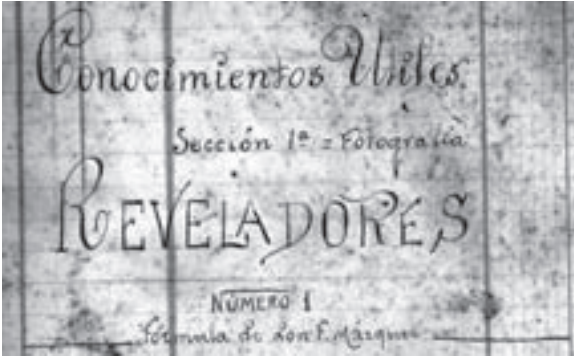 Conocimientos Utiles.
Sección 1ª = Fotografía
REVELADORES
NÚMERO 1
Fórmula de Don F. Márquez